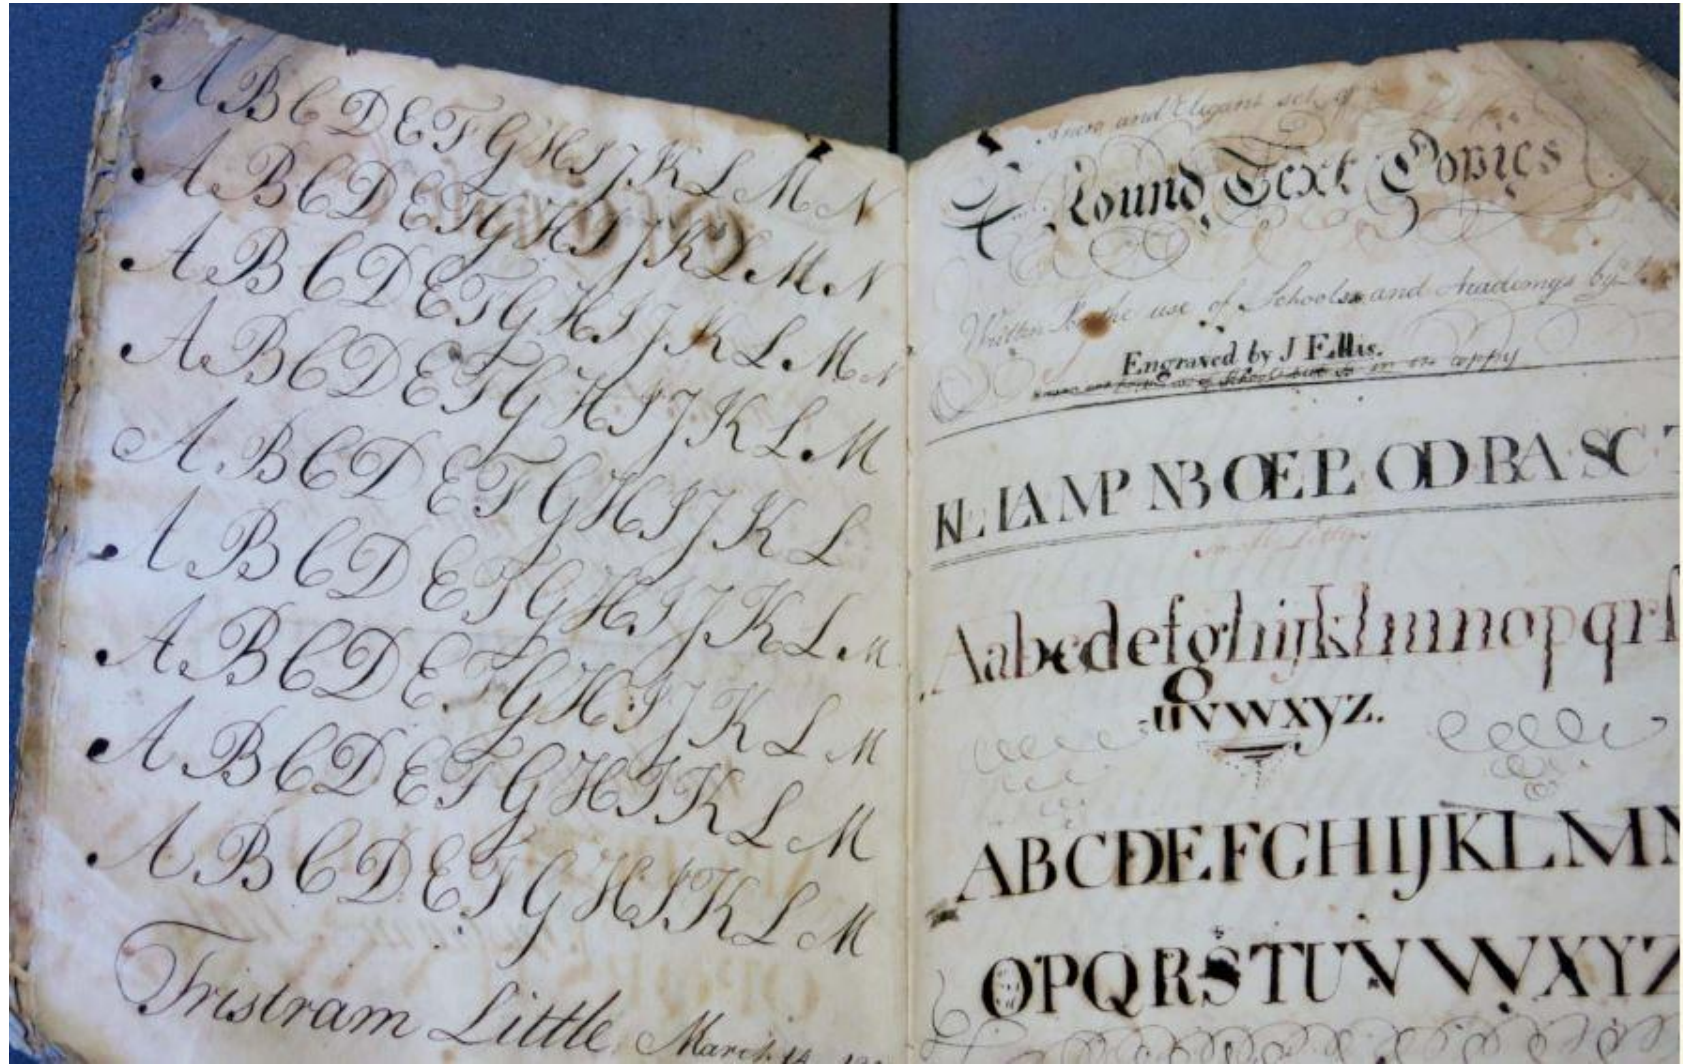 A B C D E F G H I J K L M N
A B C D E F G H I J K L M N
A B C D E F G H I J K L M N
A B C D E F G H I J K L M
A B C D E F G H I J K L
A B C D E F G H I J K L M
A B C D E F G H I J K L M
A B C D E F G H I K L M
A B C D E F G H I K L M
Tristram Little March 14
and Elegant set of
Round Text Copies
Written for the use of Schools and Academys by
Engraved by J Ellis.
KL LA MP NB OE OD BA SC
Aabcdefghijklmnopqr
uvwxyz.
ABCDEFGHIJKLMN
OPQRSTUVWXYZ